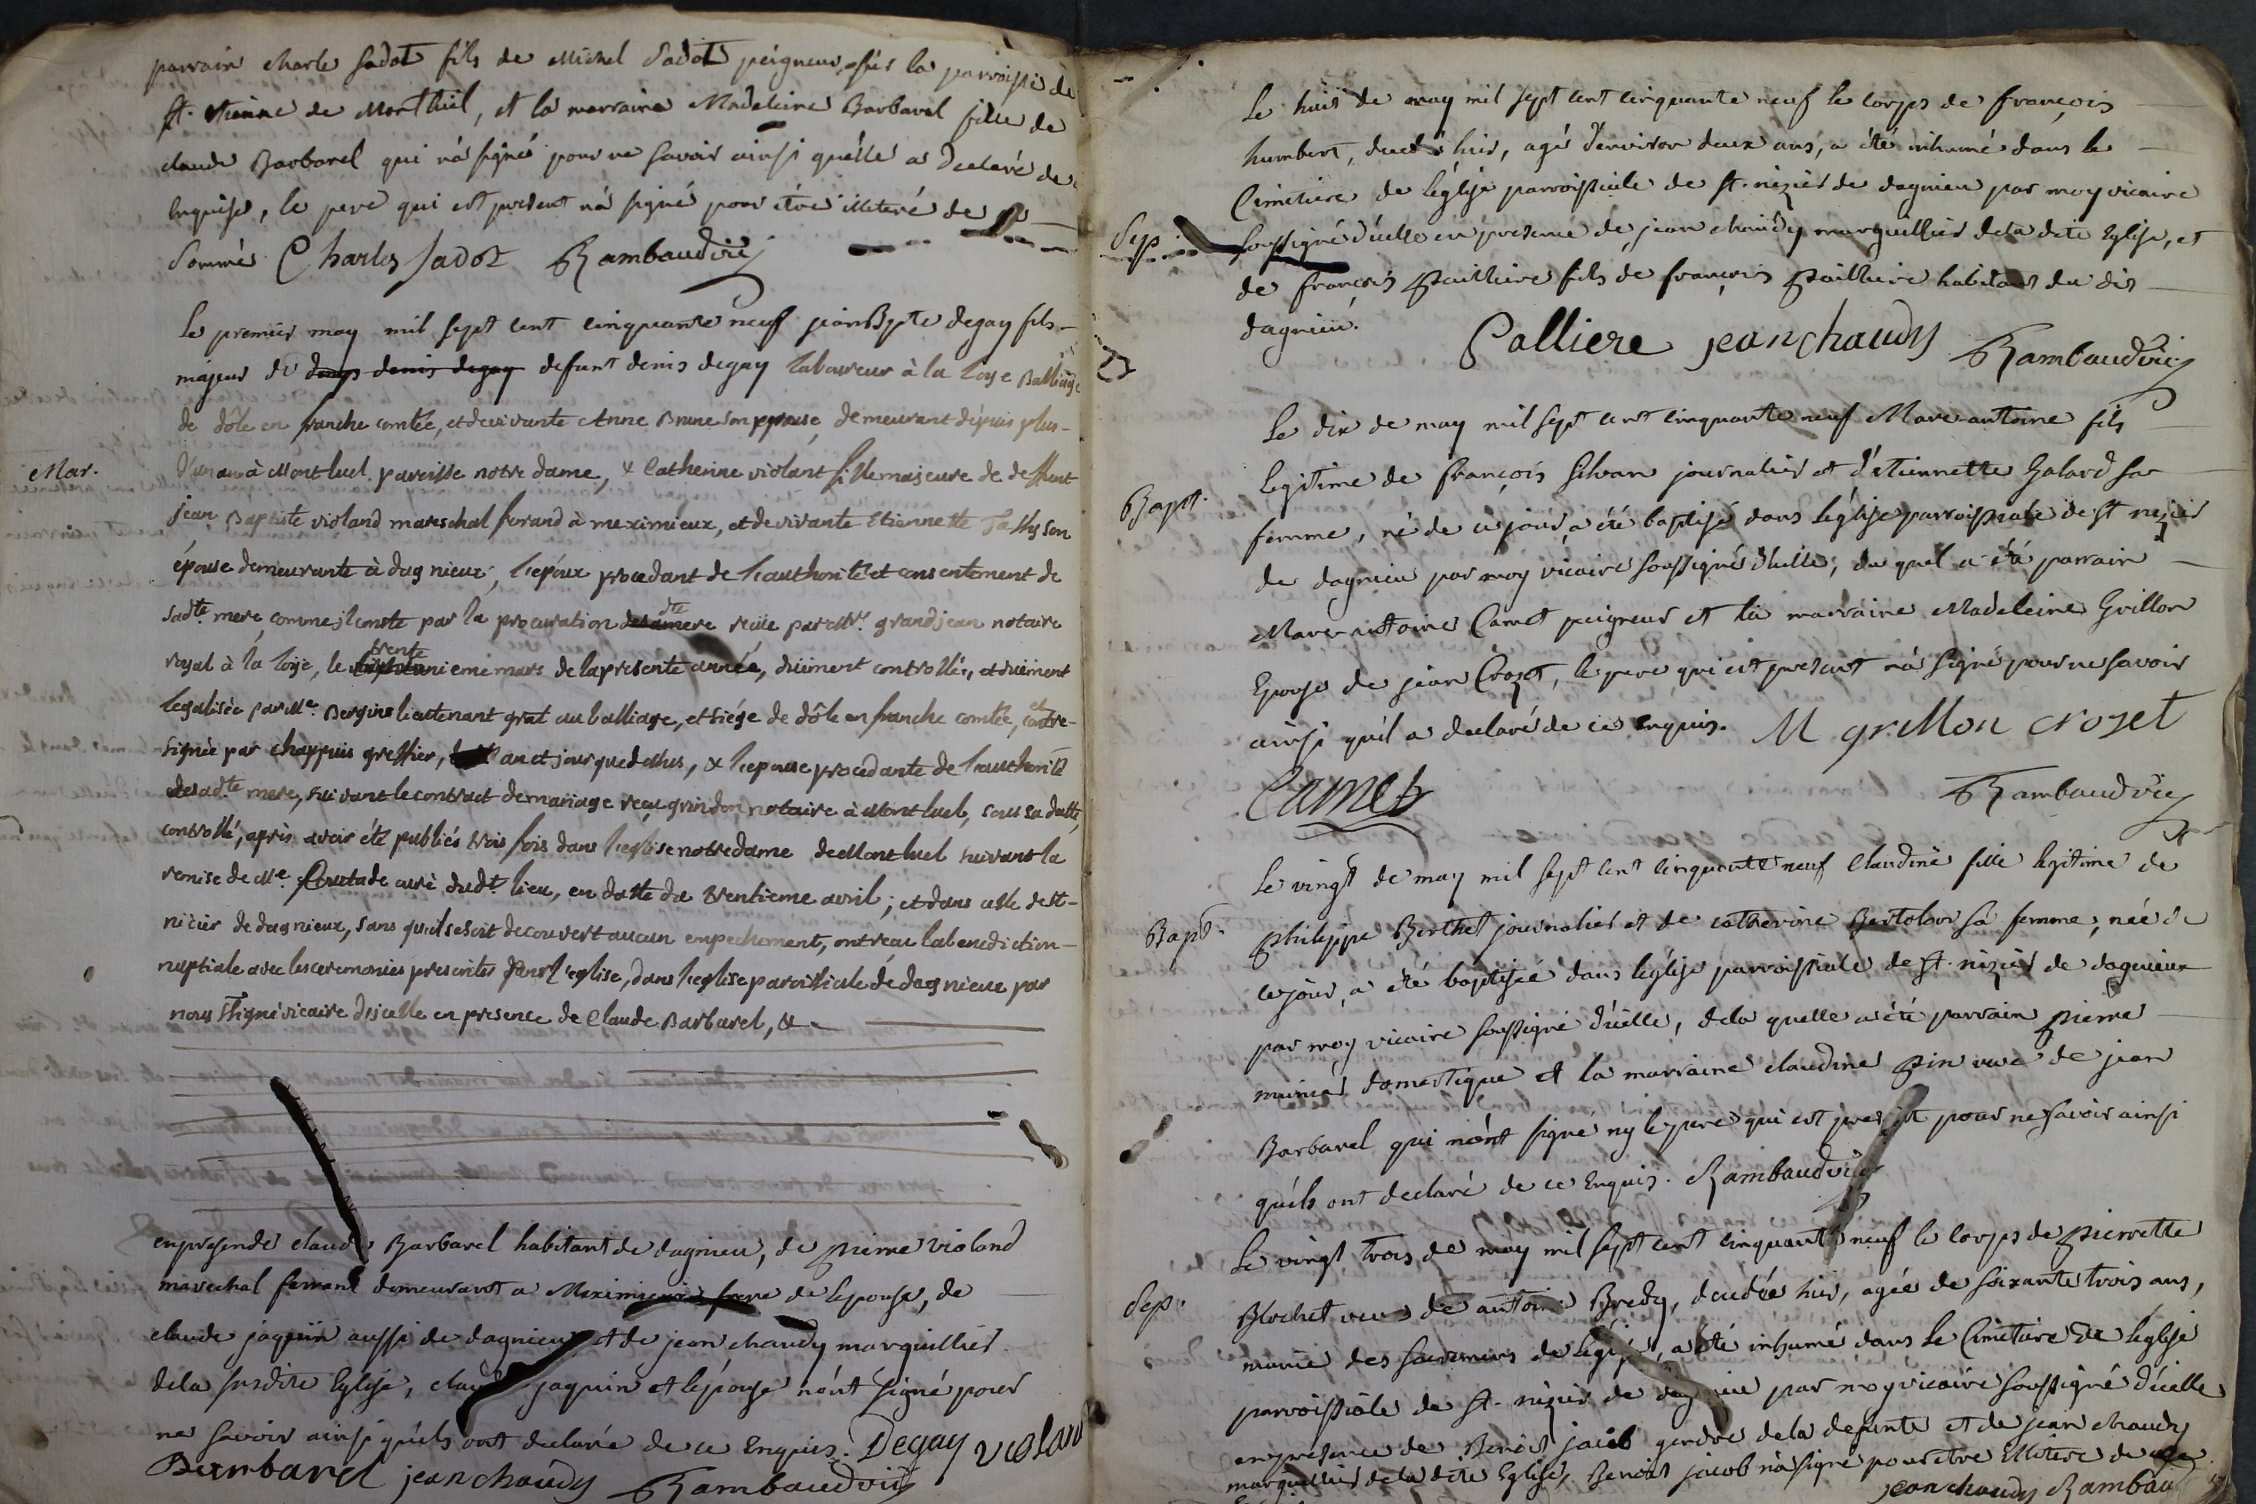 parrain charle sadot fils de Michel Sadot peigneur the la parroisse de
st. etienne de Montluel, et la marraine Madeleine Barbarel fille de
claude Barbarel qui n'a signé pour ne savoir ainsi qu'elle a declaré de
enquise, le pere qui est present n'a signé pour être illiteré de ce
sommés Charles Sadot Rambaud vic
Le premier may mil sept cent cinquante neuf jean Bpte degay fils
majeur de denis degay defunt denis degay laboureur à la loye Balliage
de dôle en franche comtée, et de vivante Anne Brune son epouse, demeurant depuis plus
d'un an à Montluel paroisse notre dame, & Catherine violant fille majeure de deffunt
jean Baptiste violand mareschal ferand à meximieux, et de vivante Etiennette son
épouse demeurante à dagnieux, l'epoux procedant de l'authorité et consentement de
sadte. mere, comme il conste par la procuration de sadte mere reçüe par Mr. grandjean notaire
royal à la loije, le trente unieme mars de la presente année, düement controllée, et düement
legalisée par Me. Bergine lieutenant gnal au balliage, et siége de dôle en franche comtée, et contre-
signée par chappuis greffier, an et jour que dessus, & l'epouse procedante de l'authorité
de sadte. mere, suivant le contract de mariage reçu grindon notaire à Montluel, sous sa datte,
controllé, après avoir été publiés trois fois dans l'eglise notre dame de Montluel suivant la
remise de Me. Coutade curé dudt. lieu, en datte du trentieme avril; et dans celle de st-
nicier de dagnieux, sans qu'il se soit decouvert aucun empechement, ont recu la benediction
nuptiale avec les ceremonies prescrites dans l'eglise, dans l'eglise paroissiale de dagnieux par
nous ssigné vicaire d'icelle en presence de Claude Barbarel, &
Mar.
en presende claude Barbarel habitant de dagnieu, de pierre violand
marechal ferrant demeurant a Meximieux frere de l'epouse, de
claude jaquin aussi de dagnieu et de jean chaudy marguillier
de la susdite Eglise, claude jaquin et l'épouse n'ont signé pour
ne savoir ainsi qu'ils ont declarée de ce enquis. Degay violan
Barbarel jean chaudy Rambaud vic
Le huit de may mil sept cent cinquante neuf le corps de françois
humbert, decedé hier, agé d'environ deux ans, a été inhumé dans le
Cimetiere de l'église parroissiale de st. nizier de dagnieu par moy vicaire
Sep. soussigné d'icelle en presence de jean chaudy marguillier de la dite Eglise, et
de françois pailliere fils de françois pailliere habitans du dit
dagnieu. Palliere jean chaudy Rambaud vic
Le dix de may mil sept cent cinquante neuf Marc-antoine fils
Bapt. legitime de françois silvan journalier et d'etiennette Galard sa
femme, né de ce jour, a été baptisé dans l'église parroissiale de st nizier
de dagnieu par moy vicaire soussigné d'icelle, du quel a été parrain
Marc-antoine Carnet peigneur et la marraine Madeleine Grillon
Epouse de jean Crozet, le pere qui est present n'a signé pour ne savoir
ainsi qu'il a declaré de ce enquis. M grillon crozet
Carnet Rambaud vic
Le vingt de may mil sept cent cinquante neuf claudine fille legitime de
Bapt. philippe Berthet journalier et de catherine Bertolon sa femme, née de
ce jour, a été baptisée dans l'église parroissiale de st. nizier de dagnieux
par moy vicaire soussigné d'icelle, de la quelle a été parrain pierre
munier domestique et la marraine claudine pin veuve de jean
Barbarel qui n'ont signé ny le pere qui est present pour ne savoir ainsi
qu'ils ont declaré de ce enquis. Rambaud vic
Le vingt trois de may mil sept cent cinquante neuf le corps de pierrette
Sep. Blochet veuve de antoine Bredy, decedée hier, agée de soixante trois ans,
munie des sacremens de l'église, a été inhumé dans le Cimetiere de l'eglise
parroissiale de st. nizier de dagnieu par moy vicaire soussigné d'icelle
en presence de Benoit jacob gendre de la defunte et de jean chaudy
marguillier de la dite Eglise, Benoit jacob n'a signé pour être illitere de
jean chaudy Rambaud